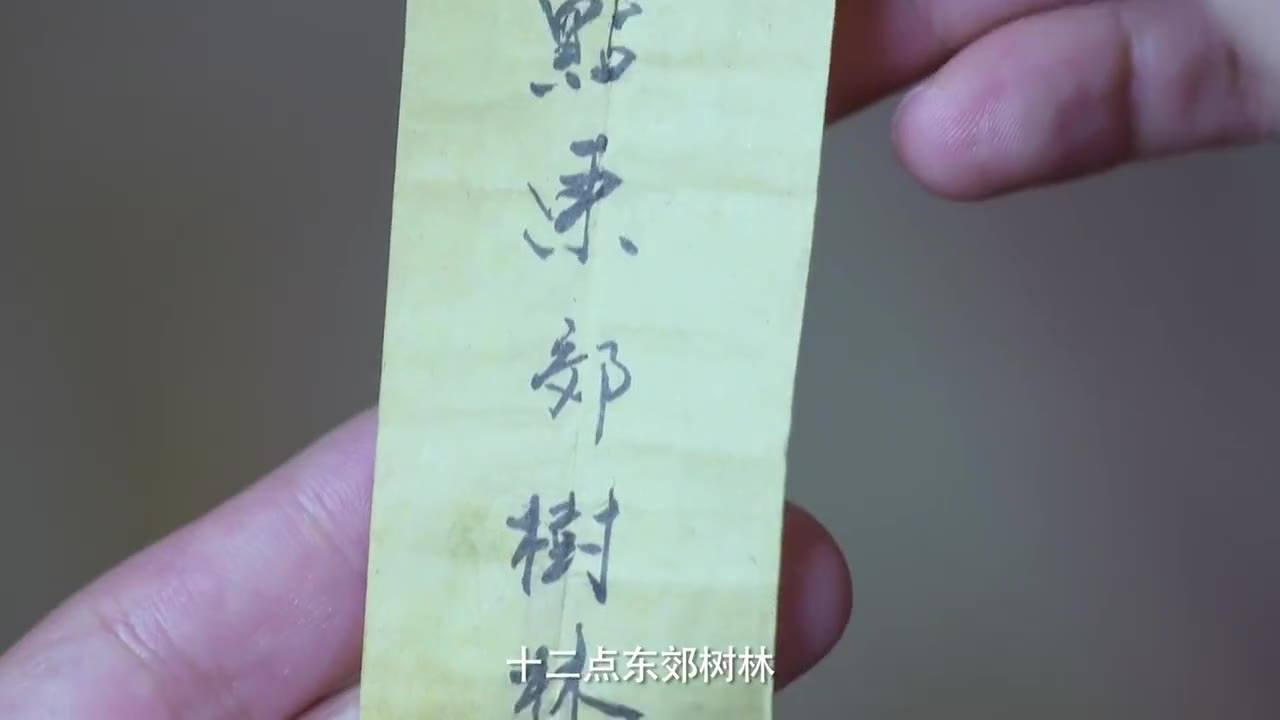 點東郊樹林
十二点东郊树林